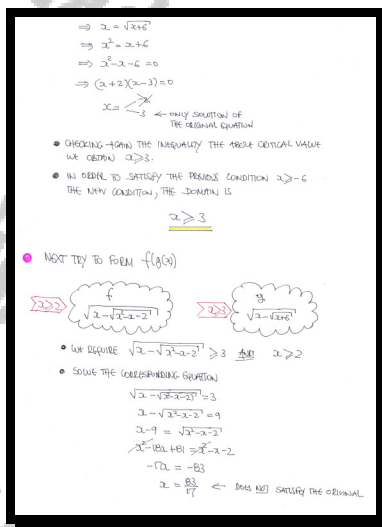 ⇒ x = √(x+6)
⇒ x² = x+6
⇒ x²-x-6 = 0
⇒ (x+2)(x-3) = 0
x = < -2
3 ← ONLY SOLUTION OF
THE ORIGINAL EQUATION
• CHECKING AGAIN THE INEQUALITY THE ABOVE CRITICAL VALUE
WE OBTAIN x≥3.
• IN ORDER TO SATISFY THE PREVIOUS CONDITION x≥-6
THE NEW CONDITION, THE DOMAIN IS
x≥3
• NEXT TRY TO FORM f(g(x))
f g
x≥2 √(x-√(x²-x-2)) x≥3 √(x-√(x+6))
• WE REQUIRE √(x-√(x²-x-2)) ≥ 3 AND x≥2
• SOLVE THE CORRESPONDING EQUATION
√(x-√(x²-x-2)) = 3
x-√(x²-x-2) = 9
x-9 = √(x²-x-2)
x²-18x+81 = x²-x-2
-17x = -83
x = 83/17 ← DOES NOT SATISFY THE ORIGINAL